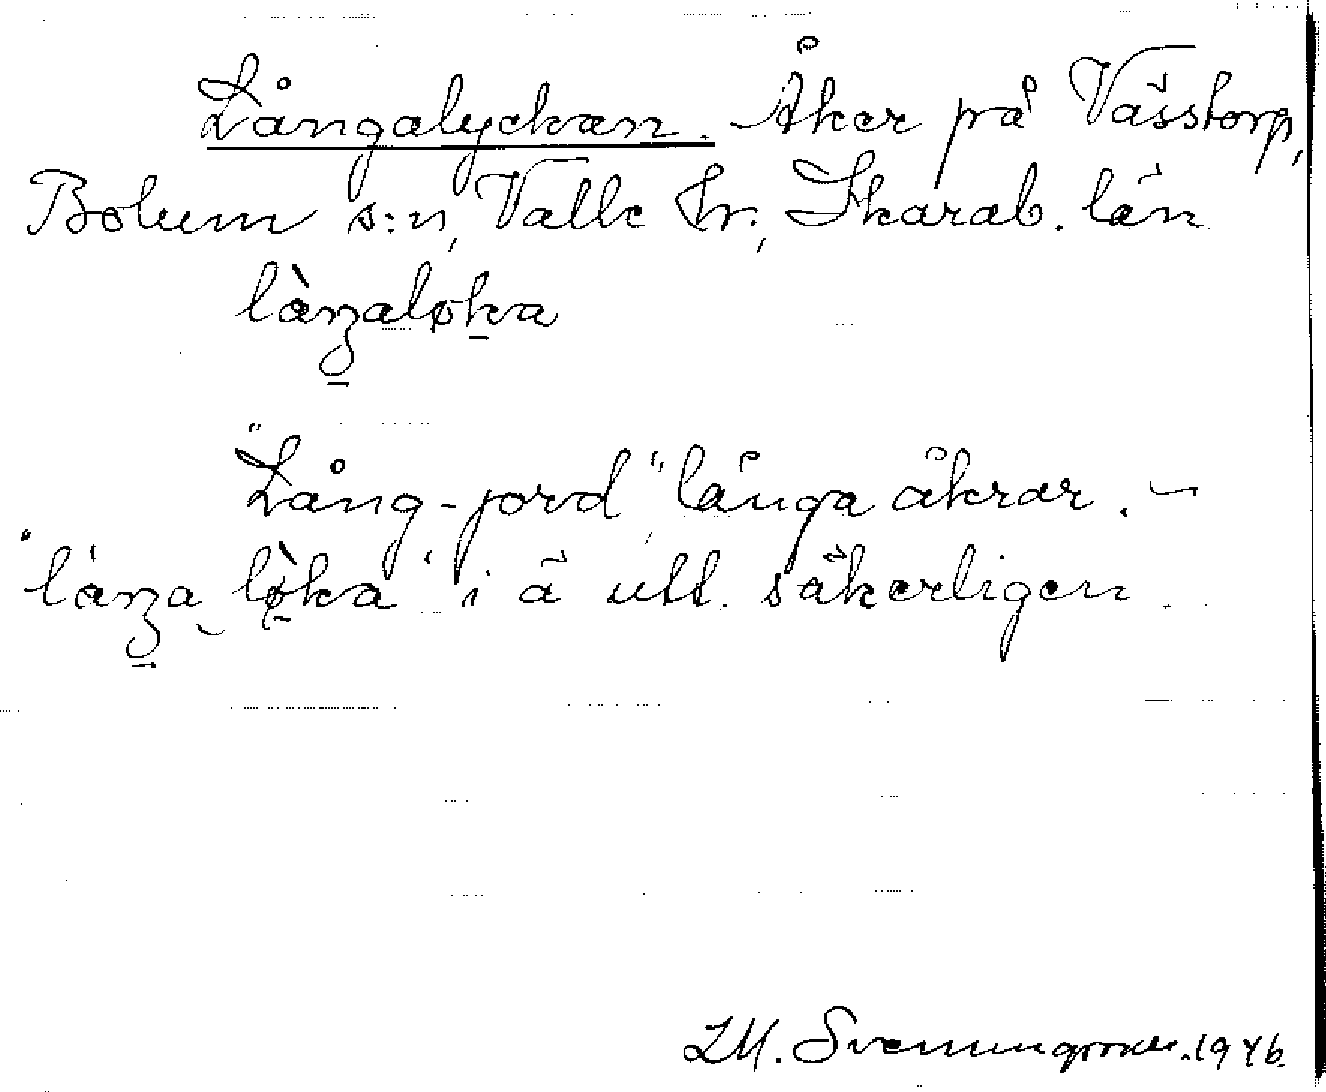 Långalyckan. Åker på Västorp,
Bolum s:n, Valle hr., Skarab. län
làŋaløka
"Lång-jord", långa åkrar. –
"làŋa lø̀ka" i ä utt. säkerligen.
Svenningsson. 1946.